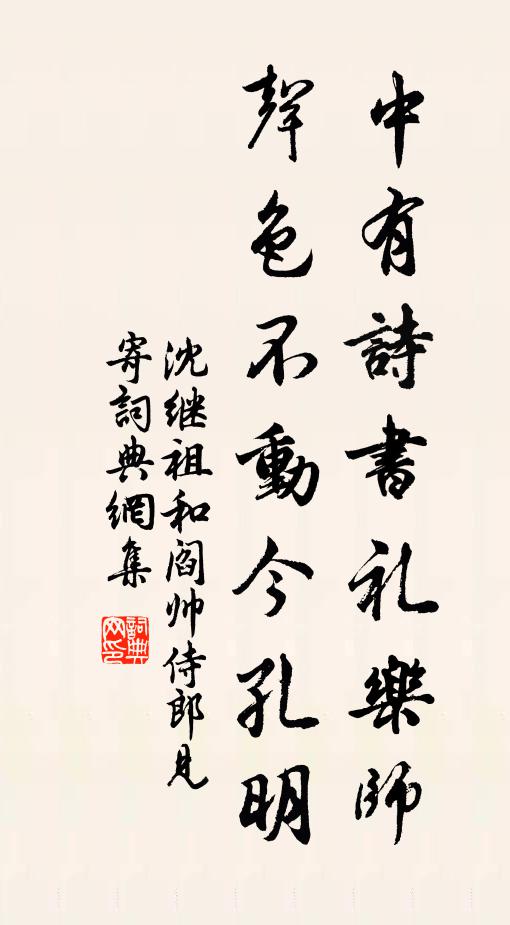 中有詩書礼樂師
聲色不動今孔明
沈继祖和阎帅侍郎見
寄詞典網集
詞典
网印